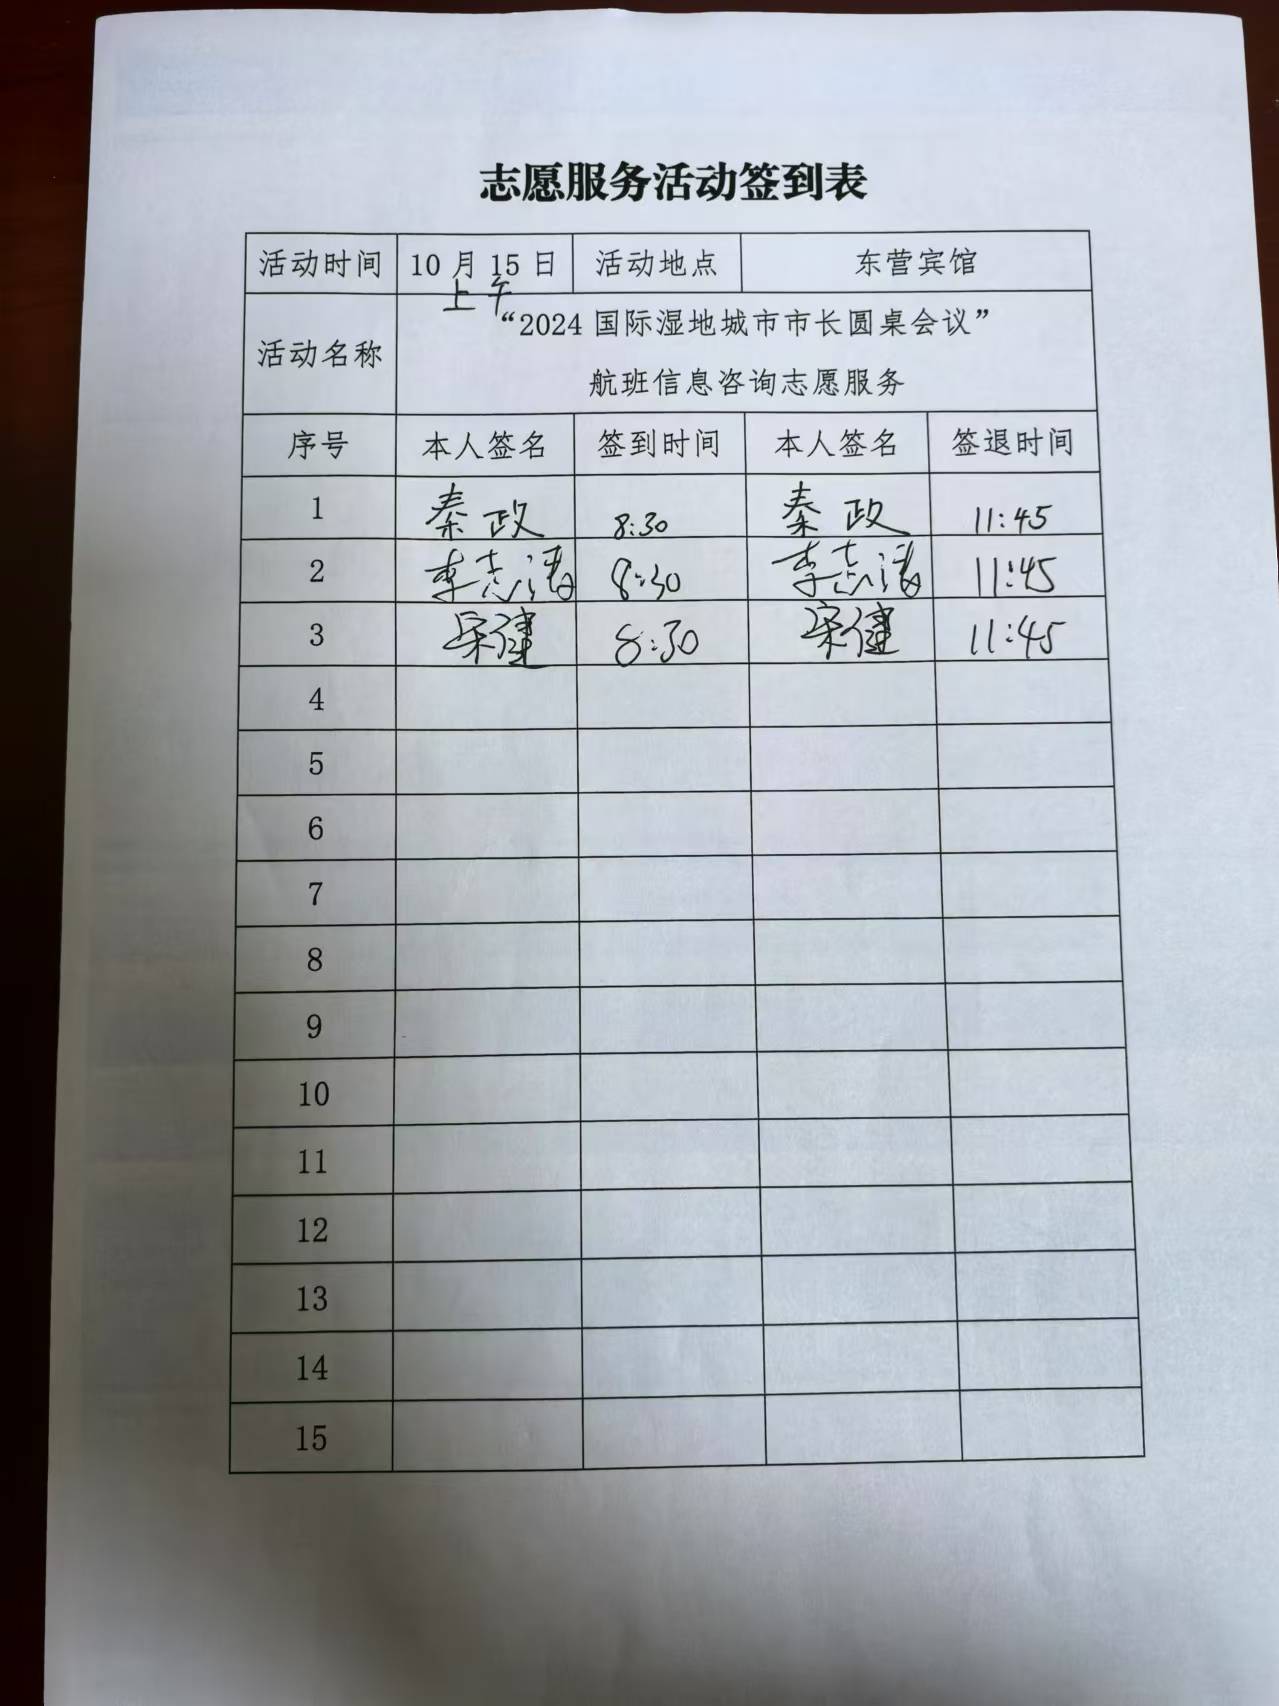 志愿服务活动签到表
活动时间 10 月 15 日 活动地点 东营宾馆
上午
活动名称 “2024 国际湿地城市市长圆桌会议”
航班信息咨询志愿服务
序号 本人签名 签到时间 本人签名 签退时间
1 秦政 8:30 秦政 11:45
2 李志涛 8:30 李志涛 11:45
3 宋健 8:30 宋健 11:45
4
5
6
7
8
9
10
11
12
13
14
15